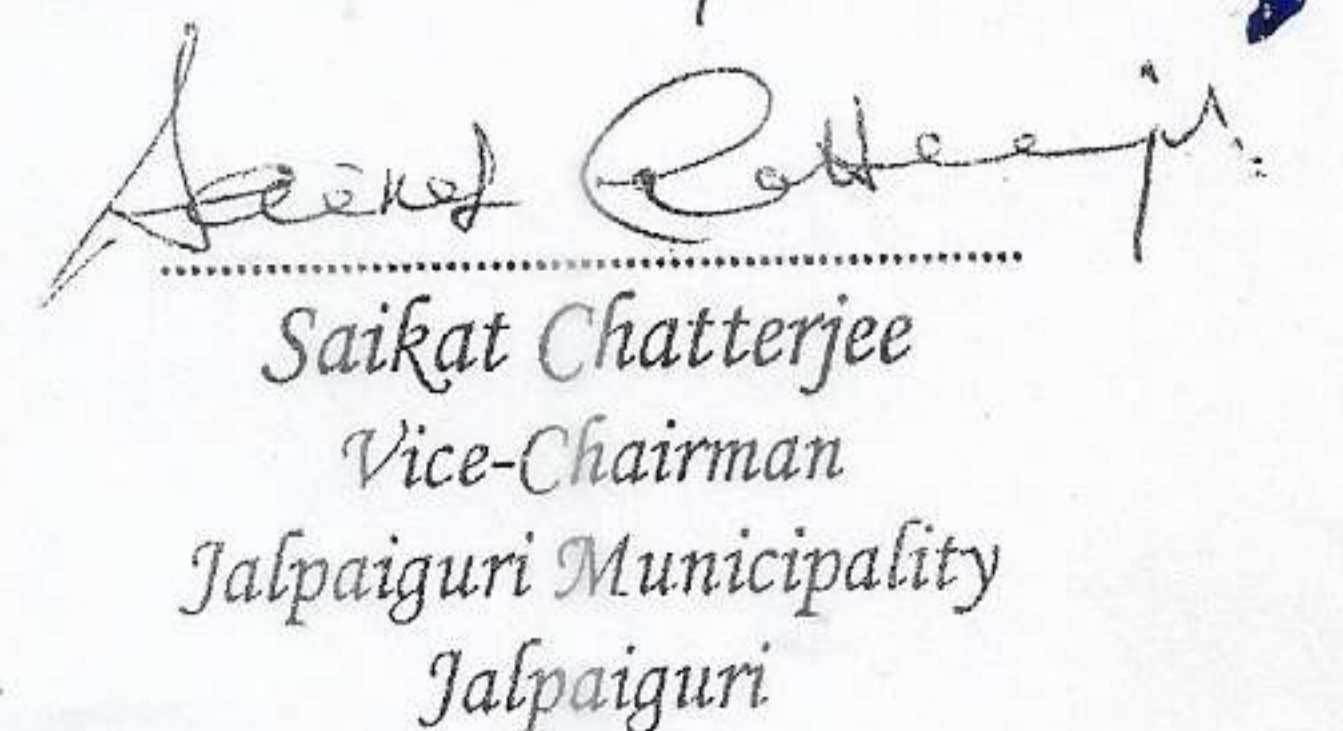 Saikat Chatterjee
Saikat Chatterjee
Vice-Chairman
Jalpaiguri Municipality
Jalpaiguri